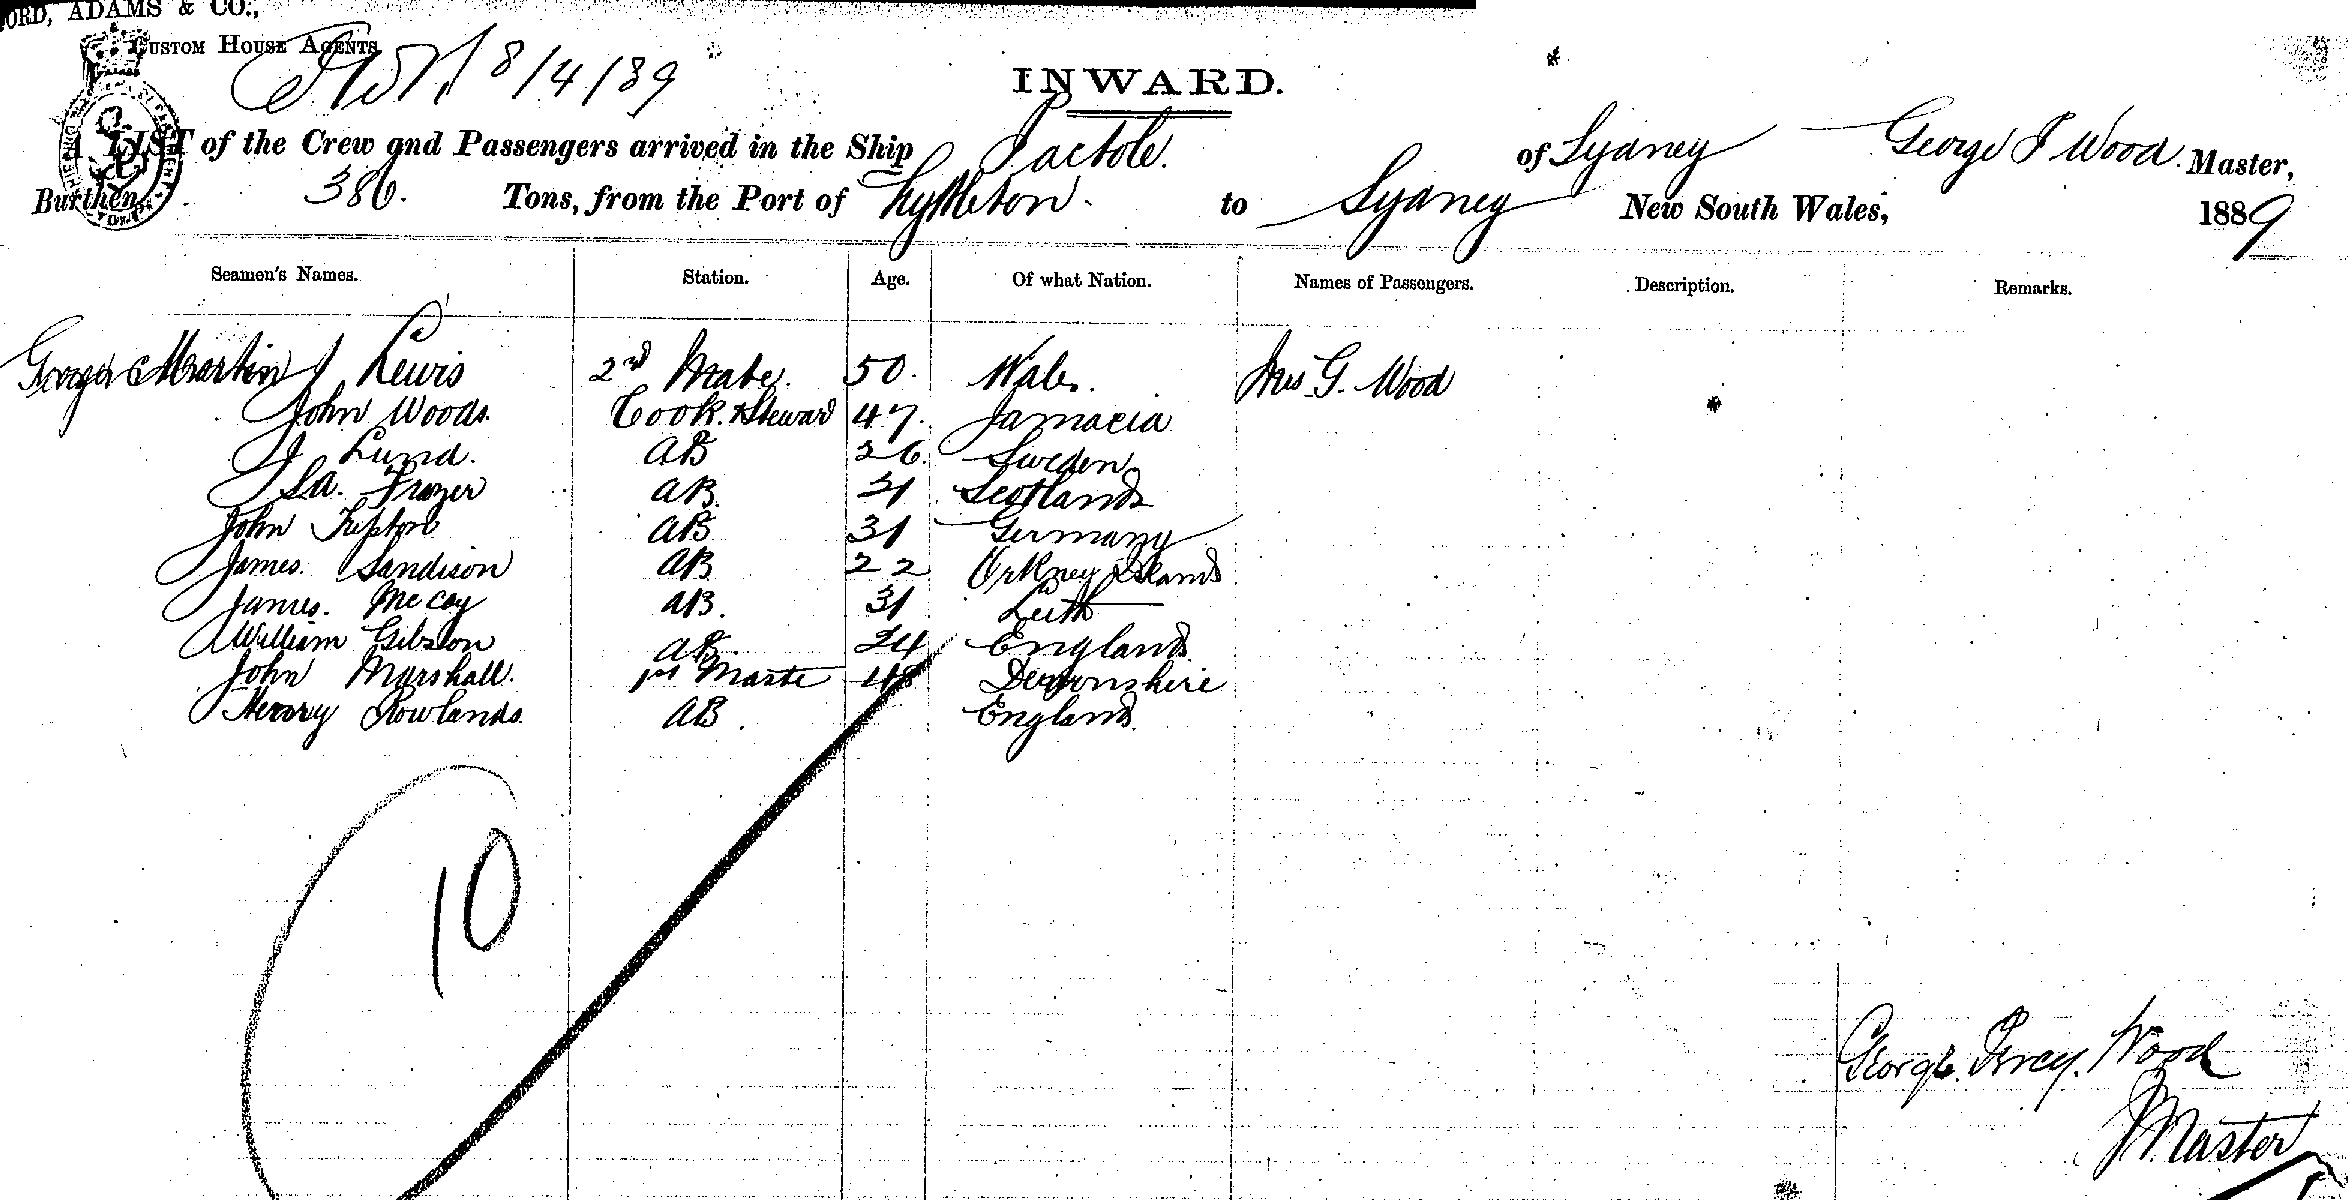 ORD, ADAMS & CO.,
CUSTOM HOUSE AGENTS
8/4/89
INWARD.
LIST of the Crew and Passengers arrived in the Ship Pactole. of Sydney George P Wood. Master,
Burthen 386. Tons, from the Port of Lyttleton. to Sydney New South Wales, 1889
Seamen's Names. Station. Age. Of what Nation. Names of Passengers. Description. Remarks.
George Martin Lewis 2nd Mate. 50. Wales. Mrs G. Wood
John Woods. Cook & Steward 47. Jamacia
J Lund. AB 26. Sweden
Frazer AB. 31 Scotland
John AB 31 Germany
James. Sandison AB 22 Orkney Island
James. McCoy AB. 31 Leith
William Gibson AB. 24 England
John Marshall. 1st Maste 48 Devonshire
Henry Rowlands. AB. England
10
George. Percy. Wood
Master